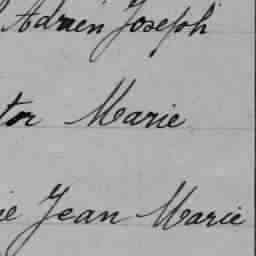 Adrien Joseph
tor Marie
ie Jean Marie